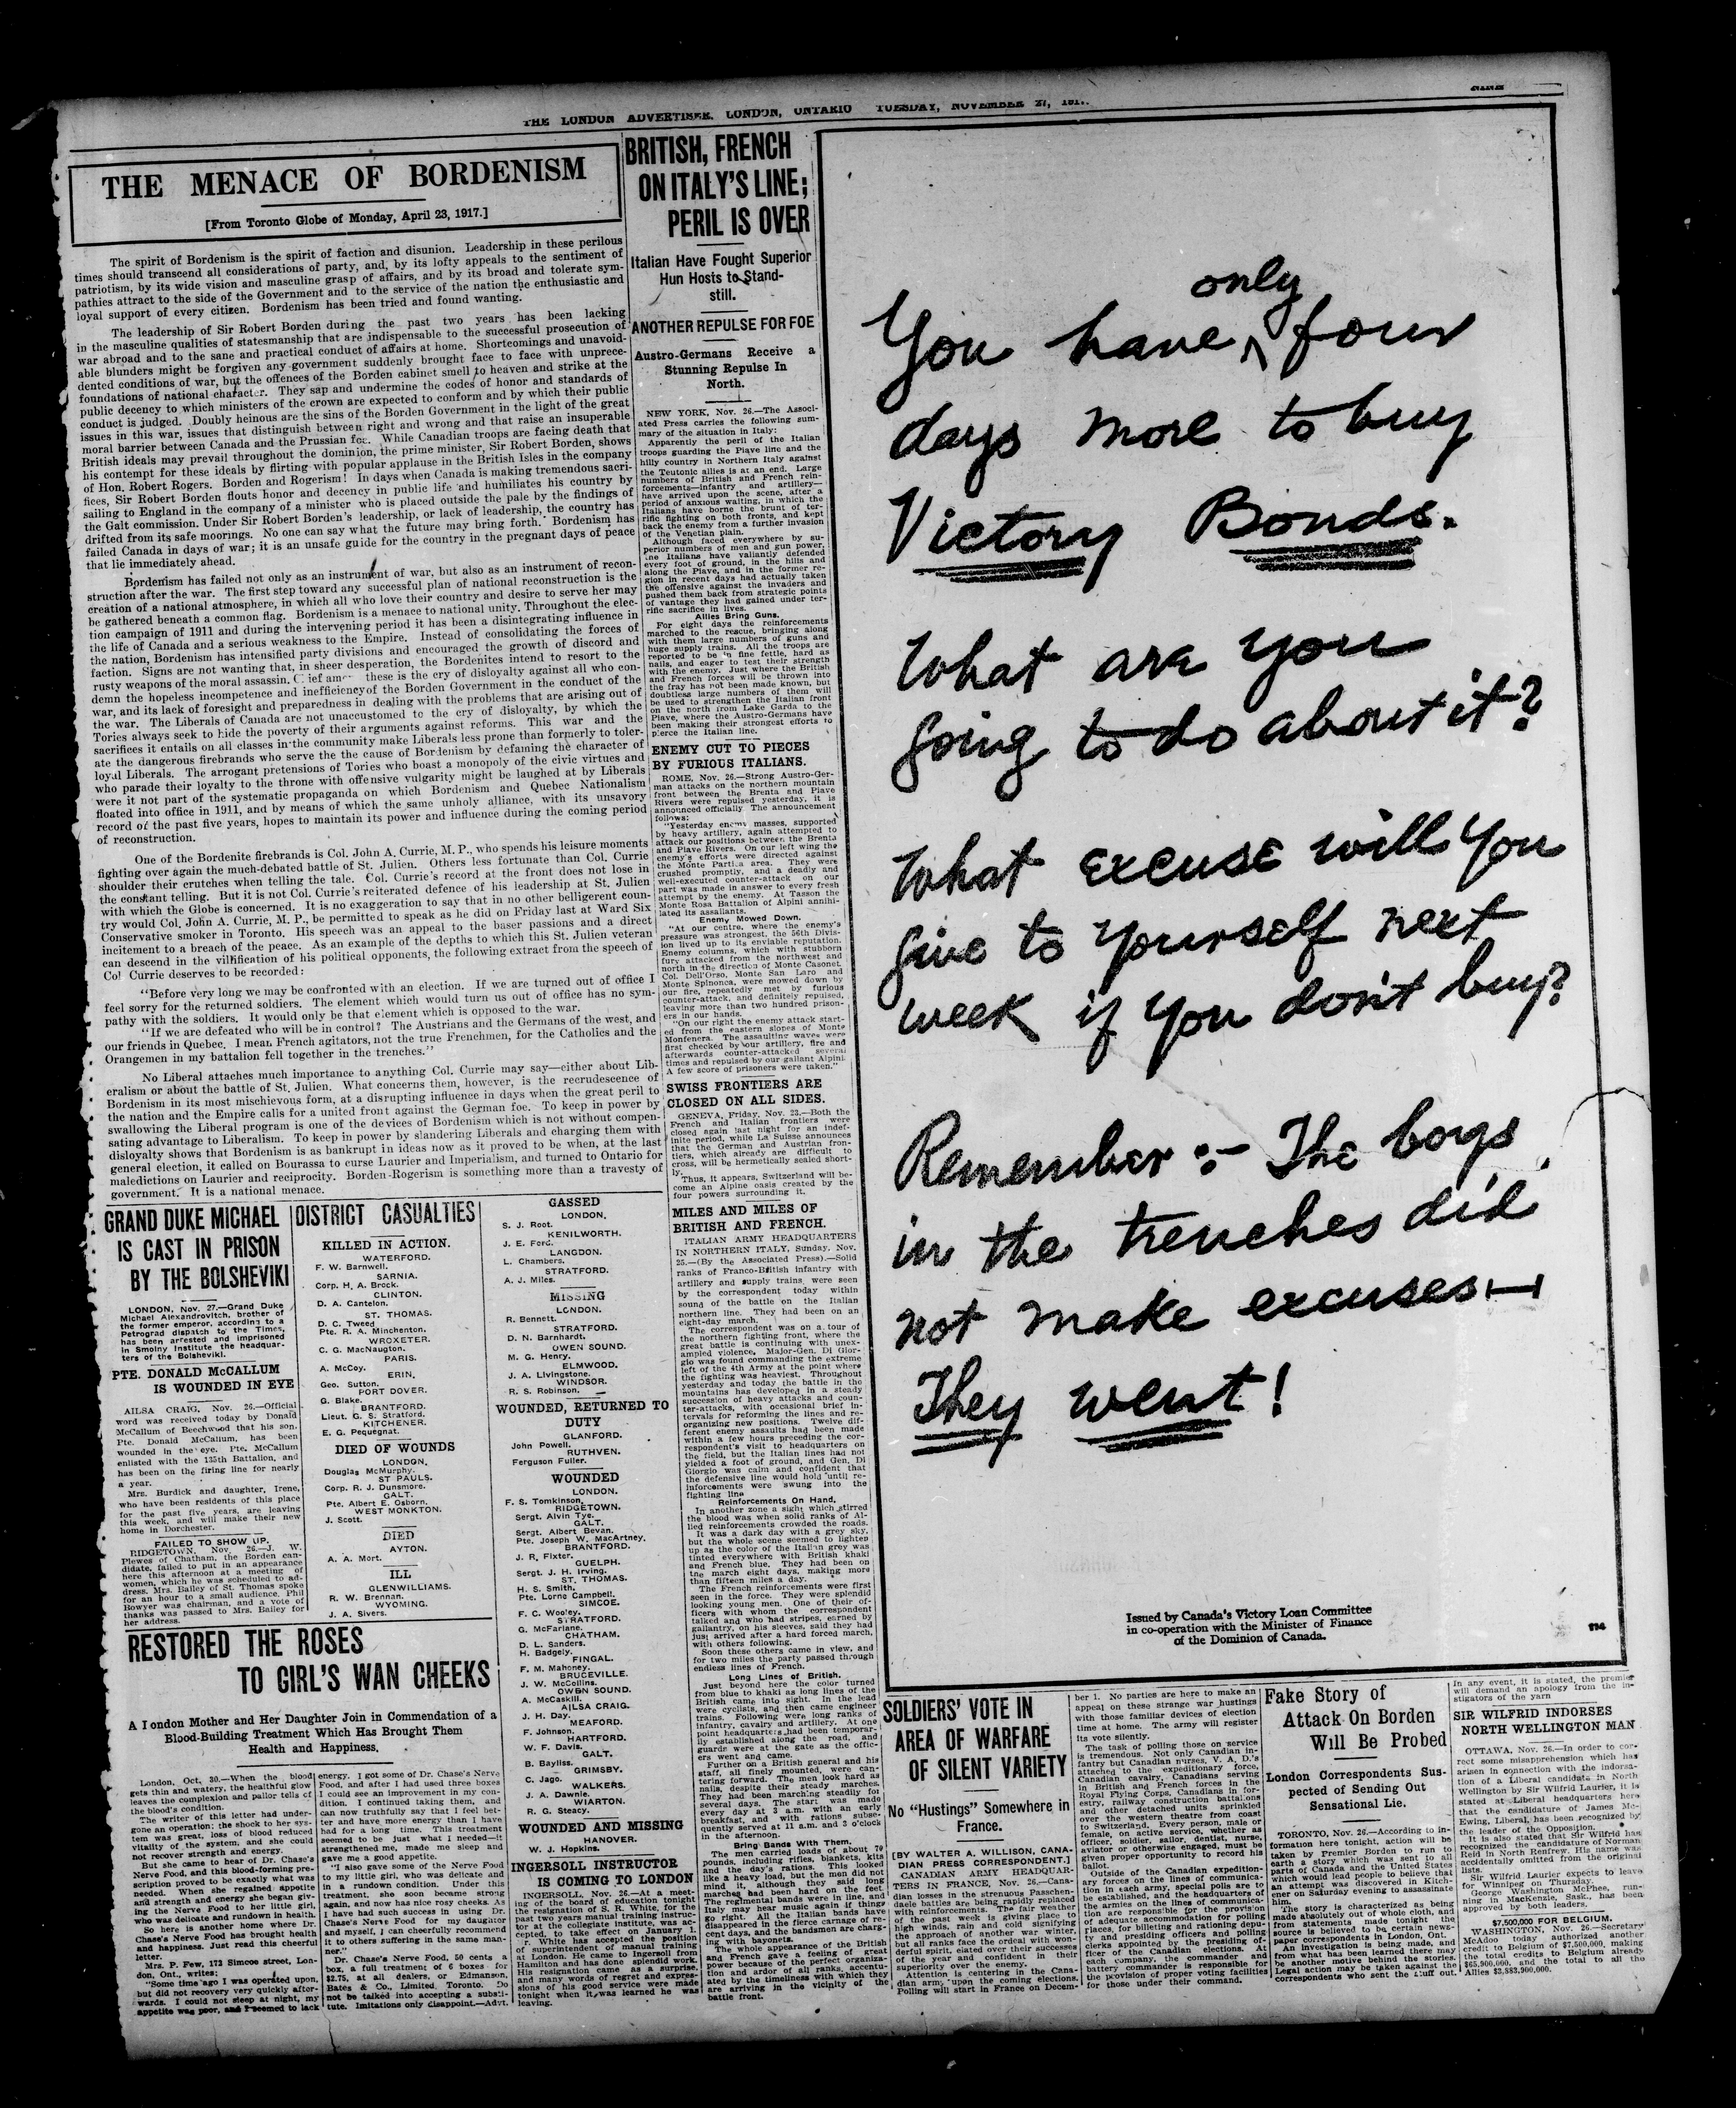 THE LONDON ADVERTISER, LONDON, ONTARIO TUESDAY, NOVEMBER 27, 191
THE MENACE OF BORDENISM
[From Toronto Globe of Monday, April 23, 1917.]
The spirit of Bordenism is the spirit of faction and disunion. Leadership in these perilous
times should transcend all considerations of party, and, by its lofty appeals to the sentiment of
patriotism, by its wide vision and masculine grasp of affairs, and by its broad and tolerate sym-
pathies attract to the side of the Government and to the service of the nation the enthusiastic and
loyal support of every citizen. Bordenism has been tried and found wanting.
The leadership of Sir Robert Borden during the past two years has been lacking
in the masculine qualities of statesmanship that are indispensable to the successful prosecution of
war abroad and to the sane and practical conduct of affairs at home. Shortcomings and unavoid-
able blunders might be forgiven any government suddenly brought face to face with unprece-
dented conditions of war, but the offences of the Borden cabinet smell to heaven and strike at the
foundations of national character. They sap and undermine the codes of honor and standards of
public decency to which ministers of the crown are expected to conform and by which their public
conduct is judged. Doubly heinous are the sins of the Borden Government in the light of the great
issues in this war, issues that distinguish between right and wrong and that raise an insuperable
moral barrier between Canada and the Prussian foe. While Canadian troops are facing death that
British ideals may prevail throughout the dominion, the prime minister, Sir Robert Borden, shows
his contempt for these ideals by flirting with popular applause in the British Isles in the company
of Hon. Robert Rogers. Borden and Rogerism! In days when Canada is making tremendous sacri-
fices, Sir Robert Borden flouts honor and decency in public life and humiliates his country by
sailing to England in the company of a minister who is placed outside the pale by the findings of
the Galt commission. Under Sir Robert Borden's leadership, or lack of leadership, the country has
drifted from its safe moorings. No one can say what the future may bring forth. Bordenism has
failed Canada in days of war; it is an unsafe guide for the country in the pregnant days of peace
that lie immediately ahead.
Bordenism has failed not only as an instrument of war, but also as an instrument of recon-
struction after the war. The first step toward any successful plan of national reconstruction is the
creation of a national atmosphere, in which all who love their country and desire to serve her may
be gathered beneath a common flag. Bordenism is a menace to national unity. Throughout the elec-
tion campaign of 1911 and during the intervening period it has been a disintegrating influence in
the life of Canada and a serious weakness to the Empire. Instead of consolidating the forces of
the nation, Bordenism has intensified party divisions and encouraged the growth of discord and
faction. Signs are not wanting that, in sheer desperation, the Bordenites intend to resort to the
rusty weapons of the moral assassin. these is the cry of disloyalty against all who con-
demn the hopeless incompetence and inefficiency of the Borden Government in the conduct of the
war, and its lack of foresight and preparedness in dealing with the problems that are arising out of
the war. The Liberals of Canada are not unaccustomed to the cry of disloyalty, by which the
Tories always seek to hide the poverty of their arguments against reforms. This war and the
sacrifices it entails on all classes in the community make Liberals less prone than formerly to toler-
ate the dangerous firebrands who serve the the cause of Bordenism by defaming the character of
loyal Liberals. The arrogant pretensions of Tories who boast a monopoly of the civic virtues and
who parade their loyalty to the throne with offensive vulgarity might be laughed at by Liberals
were it not part of the systematic propaganda on which Bordenism and Quebec Nationalism
floated into office in 1911, and by means of which the same unholy alliance, with its unsavory
record of the past five years, hopes to maintain its power and influence during the coming period
of reconstruction.
One of the Bordenite firebrands is Col. John A. Currie, M. P., who spends his leisure moments
fighting over again the much-debated battle of St. Julien. Others less fortunate than Col. Currie
shoulder their crutches when telling the tale. Col. Currie's record at the front does not lose in
the constant telling. But it is not Col. Currie's reiterated defence of his leadership at St. Julien
with which the Globe is concerned. It is no exaggeration to say that in no other belligerent coun-
try would Col. John A. Currie, M. P., be permitted to speak as he did on Friday last at Ward Six
Conservative smoker in Toronto. His speech was an appeal to the baser passions and a direct
incitement to a breach of the peace. As an example of the depths to which this St. Julien veteran
can descend in the villification of his political opponents, the following extract from the speech of
Col Currie deserves to be recorded:
"Before very long we may be confronted with an election. If we are turned out of office I
feel sorry for the returned soldiers. The element which would turn us out of office has no sym-
pathy with the soldiers. It would only be that element which is opposed to the war.
"If we are defeated who will be in control? The Austrians and the Germans of the west, and
our friends in Quebec. I mean French agitators, not the true Frenchmen, for the Catholics and the
Orangemen in my battalion fell together in the trenches."
No Liberal attaches much importance to anything Col. Currie may say—either about Lib-
eralism or about the battle of St. Julien. What concerns them, however, is the recrudescence of
Bordenism in its most mischievous form, at a disrupting influence in days when the great peril to
the nation and the Empire calls for a united front against the German foe. To keep in power by
swallowing the Liberal program is one of the devices of Bordenism which is not without compen-
sating advantage to Liberalism. To keep in power by slandering Liberals and charging them with
disloyalty shows that Bordenism is as bankrupt in ideas now as it proved to be when, at the last
general election, it called on Bourassa to curse Laurier and Imperialism, and turned to Ontario for
maledictions on Laurier and reciprocity. Borden-Rogerism is something more than a travesty of
government. It is a national menace.
GRAND DUKE MICHAEL
IS CAST IN PRISON
BY THE BOLSHEVIKI
LONDON, Nov. 27.—Grand Duke
Michael Alexandrovitch, brother of
the former emperor, according to a
Petrograd dispatch to the Times,
has been arrested and imprisoned
in Smolny Institute the headquar-
ters of the Bolsheviki.
PTE. DONALD McCALLUM
IS WOUNDED IN EYE
AILSA CRAIG, Nov. 26.—Official
word was received today by Donald
McCallum of Beechwood that his son,
Pte. Donald McCallum, has been
wounded in the eye. Pte. McCallum
enlisted with the 135th Battalion, and
has been on the firing line for nearly
a year.
Mrs. Burdick and daughter, Irene,
who have been residents of this place
for the past five years, are leaving
this week, and will make their new
home in Dorchester.
FAILED TO SHOW UP.
RIDGETOWN, Nov. 26.—J. W.
Plewes of Chatham, the Borden can-
didate, failed to put in an appearance
here this afternoon at a meeting of
women, which he was scheduled to ad-
dress. Mrs. Bailey of St. Thomas spoke
for an hour to a small audience. Phil
Bowyer was chairman, and a vote of
thanks was passed to Mrs. Bailey for
her address.
DISTRICT CASUALTIES
KILLED IN ACTION.
WATERFORD.
F. W. Barnwell.
SARNIA.
Corp. H. A. Brock.
CLINTON.
D. A. Cantelon.
ST. THOMAS.
D. C. Tweed
Pte. R. A. Minchenton.
WROXETER.
C. G. MacNaugton.
PARIS.
A. McCoy.
ERIN.
Geo. Sutton.
PORT DOVER.
G. Blake.
BRANTFORD.
Lieut. G. S. Stratford.
KITCHENER.
E. G. Pequegnat.
DIED OF WOUNDS
LONDON.
Douglas McMurphy.
ST PAULS.
Corp. R. J. Dunsmore.
GALT.
Pte. Albert E. Osborn.
WEST MONKTON.
J. Scott.
DIED
AYTON.
A. A. Mort.
ILL
GLENWILLIAMS.
R. W. Brennan.
WYOMING.
J. A. Sivers.
GASSED
LONDON.
S. J. Root.
KENILWORTH.
J. E. Ford.
LANGDON.
L. Chambers.
STRATFORD.
A. J. Miles.
MISSING
LONDON.
R. Bennett.
STRATFORD.
D. N. Barnhardt.
OWEN SOUND.
M. G. Henry.
ELMWOOD.
J. A. Livingstone.
WINDSOR.
R. S. Robinson.
WOUNDED, RETURNED TO
DUTY
GLANFORD.
John Powell.
RUTHVEN.
Ferguson Fuller.
WOUNDED
LONDON.
F. S. Tomkinson.
RIDGETOWN.
Sergt. Alvin Tye.
GALT.
Sergt. Albert Bevan.
Pte. Joseph W. MacArtney.
BRANTFORD.
J. R. Fixter.
GUELPH.
Sergt. J. H. Irving.
ST. THOMAS.
H. S. Smith.
Pte. Lorne Campbell.
SIMCOE.
F. C. Wooley.
STRATFORD.
G. McFarlane.
CHATHAM.
D. L. Sanders.
H. Badgely.
FINGAL.
F. M. Mahoney.
BRUCEVILLE.
J. W. McCollins.
OWEN SOUND.
A. McCaskill.
AILSA CRAIG.
J. H. Day.
MEAFORD.
F. Johnson.
HARTFORD.
W. F. Davis.
GALT.
B. Bayliss.
GRIMSBY.
C. Jago.
WALKERS.
J. A. Dawnie.
WIARTON.
R. G. Steacy.
WOUNDED AND MISSING
HANOVER.
W. J. Hopkins.
INGERSOLL INSTRUCTOR
IS COMING TO LONDON
INGERSOLL, Nov. 26.—At a meet-
ing of the board of education tonight
the resignation of S. R. White, for the
past two years manual training instruc-
tor at the collegiate institute, was ac-
cepted, to take effect on January 1.
r. White has accepted the position
of superintendent of manual training
at London. He came to Ingersoll from
Hamilton and has done splendid work.
His resignation came as a surprise,
and many words of regret and expres-
sions of his good service were made
tonight when it was learned he was
leaving.
RESTORED THE ROSES
TO GIRL'S WAN CHEEKS
A London Mother and Her Daughter Join in Commendation of a
Blood-Building Treatment Which Has Brought Them
Health and Happiness.
London, Oct. 30.—When the blood
gets thin and watery, the healthful glow
leaves the complexion and pallor tells of
the blood's condition.
The writer of this letter had under-
gone an operation; the shock to her sys-
tem was great, loss of blood reduced
vitality of the system, and she could
not recover strength and energy.
But she came to hear of Dr. Chase's
Nerve Food, and this blood-forming pre-
scription proved to be exactly what was
needed. When she regained appetite
and strength and energy she began giv-
ing the Nerve Food to her little girl,
who was delicate and rundown in health.
So here is another home where Dr.
Chase's Nerve Food has brought health
and happiness. Just read this cheerful
letter.
Mrs. P. Few, 172 Simcoe street, Lon-
don, Ont., writes:
"Some time ago I was operated upon,
but did not recovery very quickly after-
wards. I could not sleep at night, my
appetite was poor, and I seemed to lack
energy. I got some of Dr. Chase's Nerve
Food, and after I had used three boxes
I could see an improvement in my con-
dition. I continued taking them, and
can now truthfully say that I feel bet-
ter and have more energy than I have
had for a long time. This treatment
seemed to be just what I needed—it
strengthened me, made me sleep and
gave me a good appetite.
"I also gave some of the Nerve Food
to my little girl, who was delicate and
in a rundown condition. Under this
treatment, she soon became strong
again, and now has nice rosy cheeks. As
I have had such success in using Dr.
Chase's Nerve Food for my daughter
and myself, I can cheerfully recommend
it to others suffering in the same man-
ner."
Dr. Chase's Nerve Food, 50 cents a
box, a full treatment of 6 boxes for
$2.75, at all dealers, or Edmanson,
Bates & Co., Limited, Toronto. Do
not be talked into accepting a substi-
tute. Imitations only disappoint.—Advt.
BRITISH, FRENCH
ON ITALY'S LINE;
PERIL IS OVER
Italian Have Fought Superior
Hun Hosts to Stand-
still.
ANOTHER REPULSE FOR FOE
Austro-Germans Receive a
Stunning Repulse In
North.
NEW YORK, Nov. 26.—The Associ-
ated Press carries the following sum-
mary of the situation in Italy:
Apparently the peril of the Italian
troops guarding the Piave line and the
hilly country in Northern Italy against
the Teutonic allies is at an end. Large
numbers of British and French rein-
forcements—infantry and artillery—
have arrived upon the scene, after a
period of anxious waiting, in which the
Italians have borne the brunt of ter-
rific fighting on both fronts, and kept
back the enemy from a further invasion
of the Venetian plain.
Although faced everywhere by su-
perior numbers of men and gun power,
the Italians have valiantly defended
every foot of ground, in the hills and
along the Piave, and in the former re-
gion in recent days had actually taken
the offensive against the invaders and
pushed them back from strategic points
of vantage they had gained under ter-
rific sacrifice in lives.
Allies Bring Guns.
For eight days the reinforcements
marched to the rescue, bringing along
with them large numbers of guns and
huge supply trains. All the troops are
reported to be in fine fettle, hard as
nails, and eager to test their strength
with the enemy. Just where the British
and French forces will be thrown into
the fray has not been made known, but
doubtless large numbers of them will
be used to strengthen the Italian front
on the north from Lake Garda to the
Piave, where the Austro-Germans have
been making their strongest efforts to
pierce the Italian line.
ENEMY CUT TO PIECES
BY FURIOUS ITALIANS.
ROME, Nov. 26.—Strong Austro-Ger-
man attacks on the northern mountain
front between the Brenta and Piave
Rivers were repulsed yesterday, it is
announced officially The announcement
follows:
"Yesterday enemy masses, supported
by heavy artillery, again attempted to
attack our positions between the Brenta
and Piave Rivers. On our left wing the
enemy's efforts were directed against
the Monte Partica area. They were
crushed promptly, and a deadly and
well-executed counter-attack on our
part was made in answer to every fresh
attempt by the enemy. At Tasson the
Monte Rosa Battalion of Alpini annihi-
lated its assailants.
Enemy Mowed Down.
"At our centre, where the enemy's
pressure was strongest, the 56th Divis-
ion lived up to its enviable reputation.
Enemy columns, which with stubborn
fury attacked from the northwest and
north in the direction of Monte Casonet,
Col. Dell'Orso, Monte San Laro and
Monte Spinonca, were mowed down by
our fire, repeatedly met by furious
counter-attack, and definitely repulsed,
leaving more than two hundred prison-
ers in our hands.
"On our right the enemy attack start-
ed from the eastern slopes of Monte
Monfenera. The assaulting waves were
first checked by our artillery, fire and
afterwards counter-attacked several
times and repulsed by our gallant Alpini.
A few score of prisoners were taken."
SWISS FRONTIERS ARE
CLOSED ON ALL SIDES.
GENEVA, Friday, Nov. 23.—Both the
French and Italian frontiers were
closed again last night for an indef-
inite period, while La Suisse announces
that the German and Austrian fron-
tiers, which already are difficult to
cross, will be hermetically sealed short-
ly.
Thus, it appears, Switzerland will be-
come an Alpine oasis created by the
four powers surrounding it.
MILES AND MILES OF
BRITISH AND FRENCH.
ITALIAN ARMY HEADQUARTERS
IN NORTHERN ITALY, Sunday, Nov.
25.—(By the Associated Press).—Solid
ranks of Franco-British infantry with
artillery and supply trains were seen
by the correspondent today within
soung of the battle on the Italian
northern line. They had been on an
eight-day march.
The correspondent was on a tour of
the northern fighting front, where the
great battle is continuing with unex-
ampled violence. Major-Gen. Di Gior-
gio was found commanding the extreme
left of the 4th Army at the point where
the fighting was heaviest. Throughout
yesterday and today the battle in the
mountains has developed in a steady
succession of heavy attacks and coun-
ter-attacks, with occasional brief in-
tervals for reforming the lines and re-
organizing new positions. Twelve dif-
ferent enemy assaults had been made
within a few hours preceding the cor-
respondent's visit to headquarters on
the field, but the Italian lines had not
yielded a foot of ground, and Gen. Di
Giorgio was calm and confident that
the defensive line would hold until re-
inforcements were swung into the
fighting line
Reinforcements On Hand.
In another zone a sight which stirred
the blood was when solid ranks of Al-
lied reinforcements crowded the roads.
It was a dark day with a grey sky,
but the whole scene seemed to lighten
up as the color of the Italian grey was
tinted everywhere with British khaki
and French blue. They had been on
the march eight days, making more
than fifteen miles a day.
The French reinforcements were first
seen in the force. They were splendid
looking young men. One of their of-
ficers with whom the correspondent
talked and who had stripes, earned by
gallantry, on his sleeves, said they had
just arrived after a hard forced march,
with others following.
Soon these others came in view, and
for two miles the party passed through
endless lines of French.
Long Lines of British.
Just beyond here the color turned
from blue to khaki as long lines of the
British came into sight. In the lead
were cyclists, and then came engineer
trains. Following were long ranks of
infantry, cavalry and artillery. At one
point headquarters had been temporar-
ily established along the road, and
guards were at the gate as the offic-
ers went and came.
Further on a British general and his
staff, all finely mounted, were can-
tering forward. The men look hard as
nails, despite their steady marches.
They had been marching steadily for
several days. The start was made
every day at 3 a.m. with an early
breakfast, and with rations subse-
quently served at 11 a.m. and 3 o'clock
in the afternoon.
Bring Bands With Them.
The men carried loads of about 70
pounds, including rifles, blankets, kits
and the day's rations. This looked
like a heavy load, but the men did not
mind it, although they said long
marches had been hard on the feet
The regimental bands were in line, and
Italy may hear music again if things
go right. All the Italian bands have
disappeared in the fierce carnage of re-
cent days, and the bandsmen are charg-
ing with bayonets.
The whole appearance of the British
and French gave a feeling of great
power because of the perfect organiza-
tion and ardor of all ranks, accentu-
ated by the timeliness with which they
are arriving in the vicinity of the
battle front.
You have only four
days more to buy
Victory Bonds.
What are you
going to do about it?
What excuse will you
give to yourself next
week if you don't buy?
Remember:- The boys
in the trenches did
not make excuses—
They went!
Issued by Canada's Victory Loan Committee
in co-operation with the Minister of Finance
of the Dominion of Canada.
114
SOLDIERS' VOTE IN
AREA OF WARFARE
OF SILENT VARIETY
No "Hustings" Somewhere in
France.
[BY WALTER A. WILLISON, CANA-
DIAN PRESS CORRESPONDENT.]
CANADIAN ARMY HEADQUAR-
TERS IN FRANCE, Nov. 26.—Cana-
dian losses in the strenuous Passchen-
daele battles are being rapidly replaced
with reinforcements. The fair weather
of the past week is giving place to
high winds, rain and cold signifying
the approach of another war winter,
but all ranks face the ordeal with won-
derful spirit, elated over their successes
of the year and confident in their
superiority over the enemy.
Attention is centering in the Cana-
dian army upon the coming elections.
Polling will start in France on Decem-
ber 1. No parties are here to make an
appeal on these strange war hustings
with those familiar devices of election
time at home. The army will register
its vote silently.
The task of polling those on service
is tremendous. Not only Canadian in-
fantry but Canadian nurses, V. A. D.'s
attached to the expeditionary force,
Canadian cavalry, Canadians serving
in British and French forces in the
Royal Flying Corps, Canadians in for-
estry, railway construction battalions
and other detached units sprinkled
over the western theatre from coast
to Switzerland. Every person, male or
female, on active service, whether as
officer, soldier, sailor, dentist, nurse,
aviator or otherwise engaged, must be
given proper opportunity to record his
ballot.
Outside of the Canadian expedition-
ary forces on the lines of communica-
tion in each army, special polls are to
be established, and the headquarters of
the armies on the lines of communica-
tion are responsible for the provision
of adequate accommodation for polling
places, for billeting and rationing depu-
ty and presiding officers and polling
clerks appointed by the presiding of-
ficer of the Canadian elections. At
each company, the command and
battery commander is responsible for
the provision of proper voting facilities
for those under their command.
Fake Story of
Attack On Borden
Will Be Probed
London Correspondents Sus-
pected of Sending Out
Sensational Lie.
TORONTO, Nov. 26.—According to in-
formation here tonight, action will be
taken by Premier Borden to run to
earth a story which was sent to all
parts of Canada and the United States
which would lead people to believe that
an attempt was discovered in Kitch-
ener on Saturday evening to assassinate
him.
The story is characterized as being
made absolutely out of whole cloth, and
from statements made tonight the
source is believed to be certain news-
paper correspondents in London, Ont.
An investigation is being made, and
from what has been learned there may
be another motive behind the stories.
Legal action may be taken against the
correspondents who sent the stuff out.
In any event, it is stated, the premier
will demand an apology from the in-
stigators of the yarn
SIR WILFRID INDORSES
NORTH WELLINGTON MAN
OTTAWA, Nov. 26.—In order to cor-
rect some misapprehension which has
arisen in connection with the indorsa-
tion of a Liberal candidate in North
Wellington by Sir Wilfrid Laurier, it is
stated at Liberal headquarters here
that the candidature of James Mc-
Ewing, Liberal, has been recognized by
the leader of the Opposition.
It is also stated that Sir Wilfrid has
recognized the candidature of Norman
Reid in North Renfrew. His name was
accidentally omitted from the original
lists.
Sir Wilfrid Laurier expects to leave
for Winnipeg on Thursday.
George Washington McPhee, run-
ning in MacKenzie, Sask., has been
approved by both leaders.
$7,500,000 FOR BELGIUM.
WASHINGTON, Nov. 26.—Secretary
McAdoo today authorized another
credit to Belgium of $7,500,000, making
the total credits to Belgium already
$65,900,000, and the total to all the
Allies $3,883,900,000.